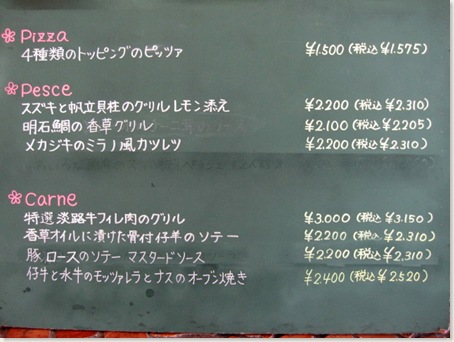 Pizza
4種類のトッピングのピッツァ ¥1.500(税込 ¥1.575)
Pesce
スズキと帆立貝柱のグリル レモン添え ¥2.200(税込 ¥2.310)
明石鯛の香草グリル ¥2.100(税込 ¥2.205)
メカジキのミラノ風カツレツ ¥2.200(税込 ¥2.310)
Carne
特選淡路牛フィレ肉のグリル ¥3.000(税込 ¥3.150)
香草オイルに漬けた骨付仔羊のソテー ¥2.200(税込 ¥2.310)
豚ロースのソテー マスタードソース ¥2.200(税込 ¥2.310)
仔牛と水牛のモッツァレラとナスのオーブン焼き ¥2.400(税込 ¥2.520)